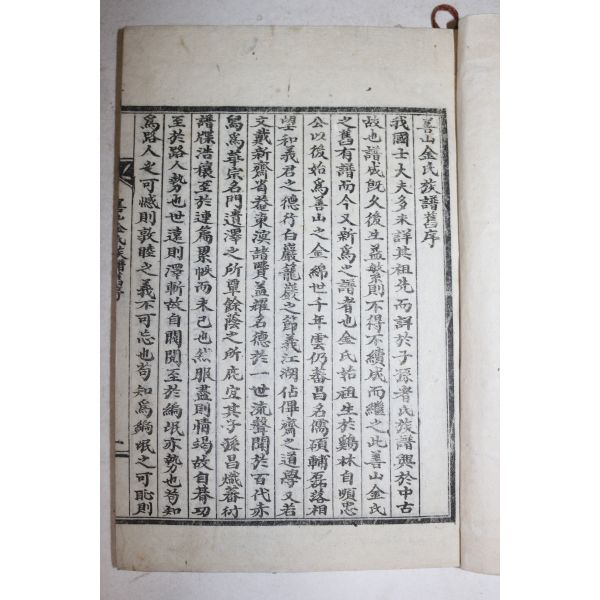 善山金氏族譜舊序
我國士大夫多未詳其祖先而詳於子孫者氏族譜興於中古
故也譜成旣久後生益繁則不得不續成而繼之此善山金氏
之舊有譜而今又新爲之譜者也金氏始祖生於鷄林自順忠
公以後始爲善山之金綿世千年雲仍蕃昌名儒碩輔磊落相
望士和義君之德行白巖籠巖之節義江湖佔畢齋之道學又若
文戴新齋省菴東溟諸賢蓋耀名德於一世流聲聞於百代亦
爲爲華宗名門遺澤之所覃餘蔭之所庇宜其子孫昌熾蕃衍
譜牒浩穰至於連篇累帙而未已也然服盡則情竭故自朞功
至於路人勢也世遠則澤斬故自閥閱至於編氓亦勢也苟知
爲路人之可憾則敦睦之義不可忘也苟知爲編氓之可恥則
善山金氏族譜舊序
一